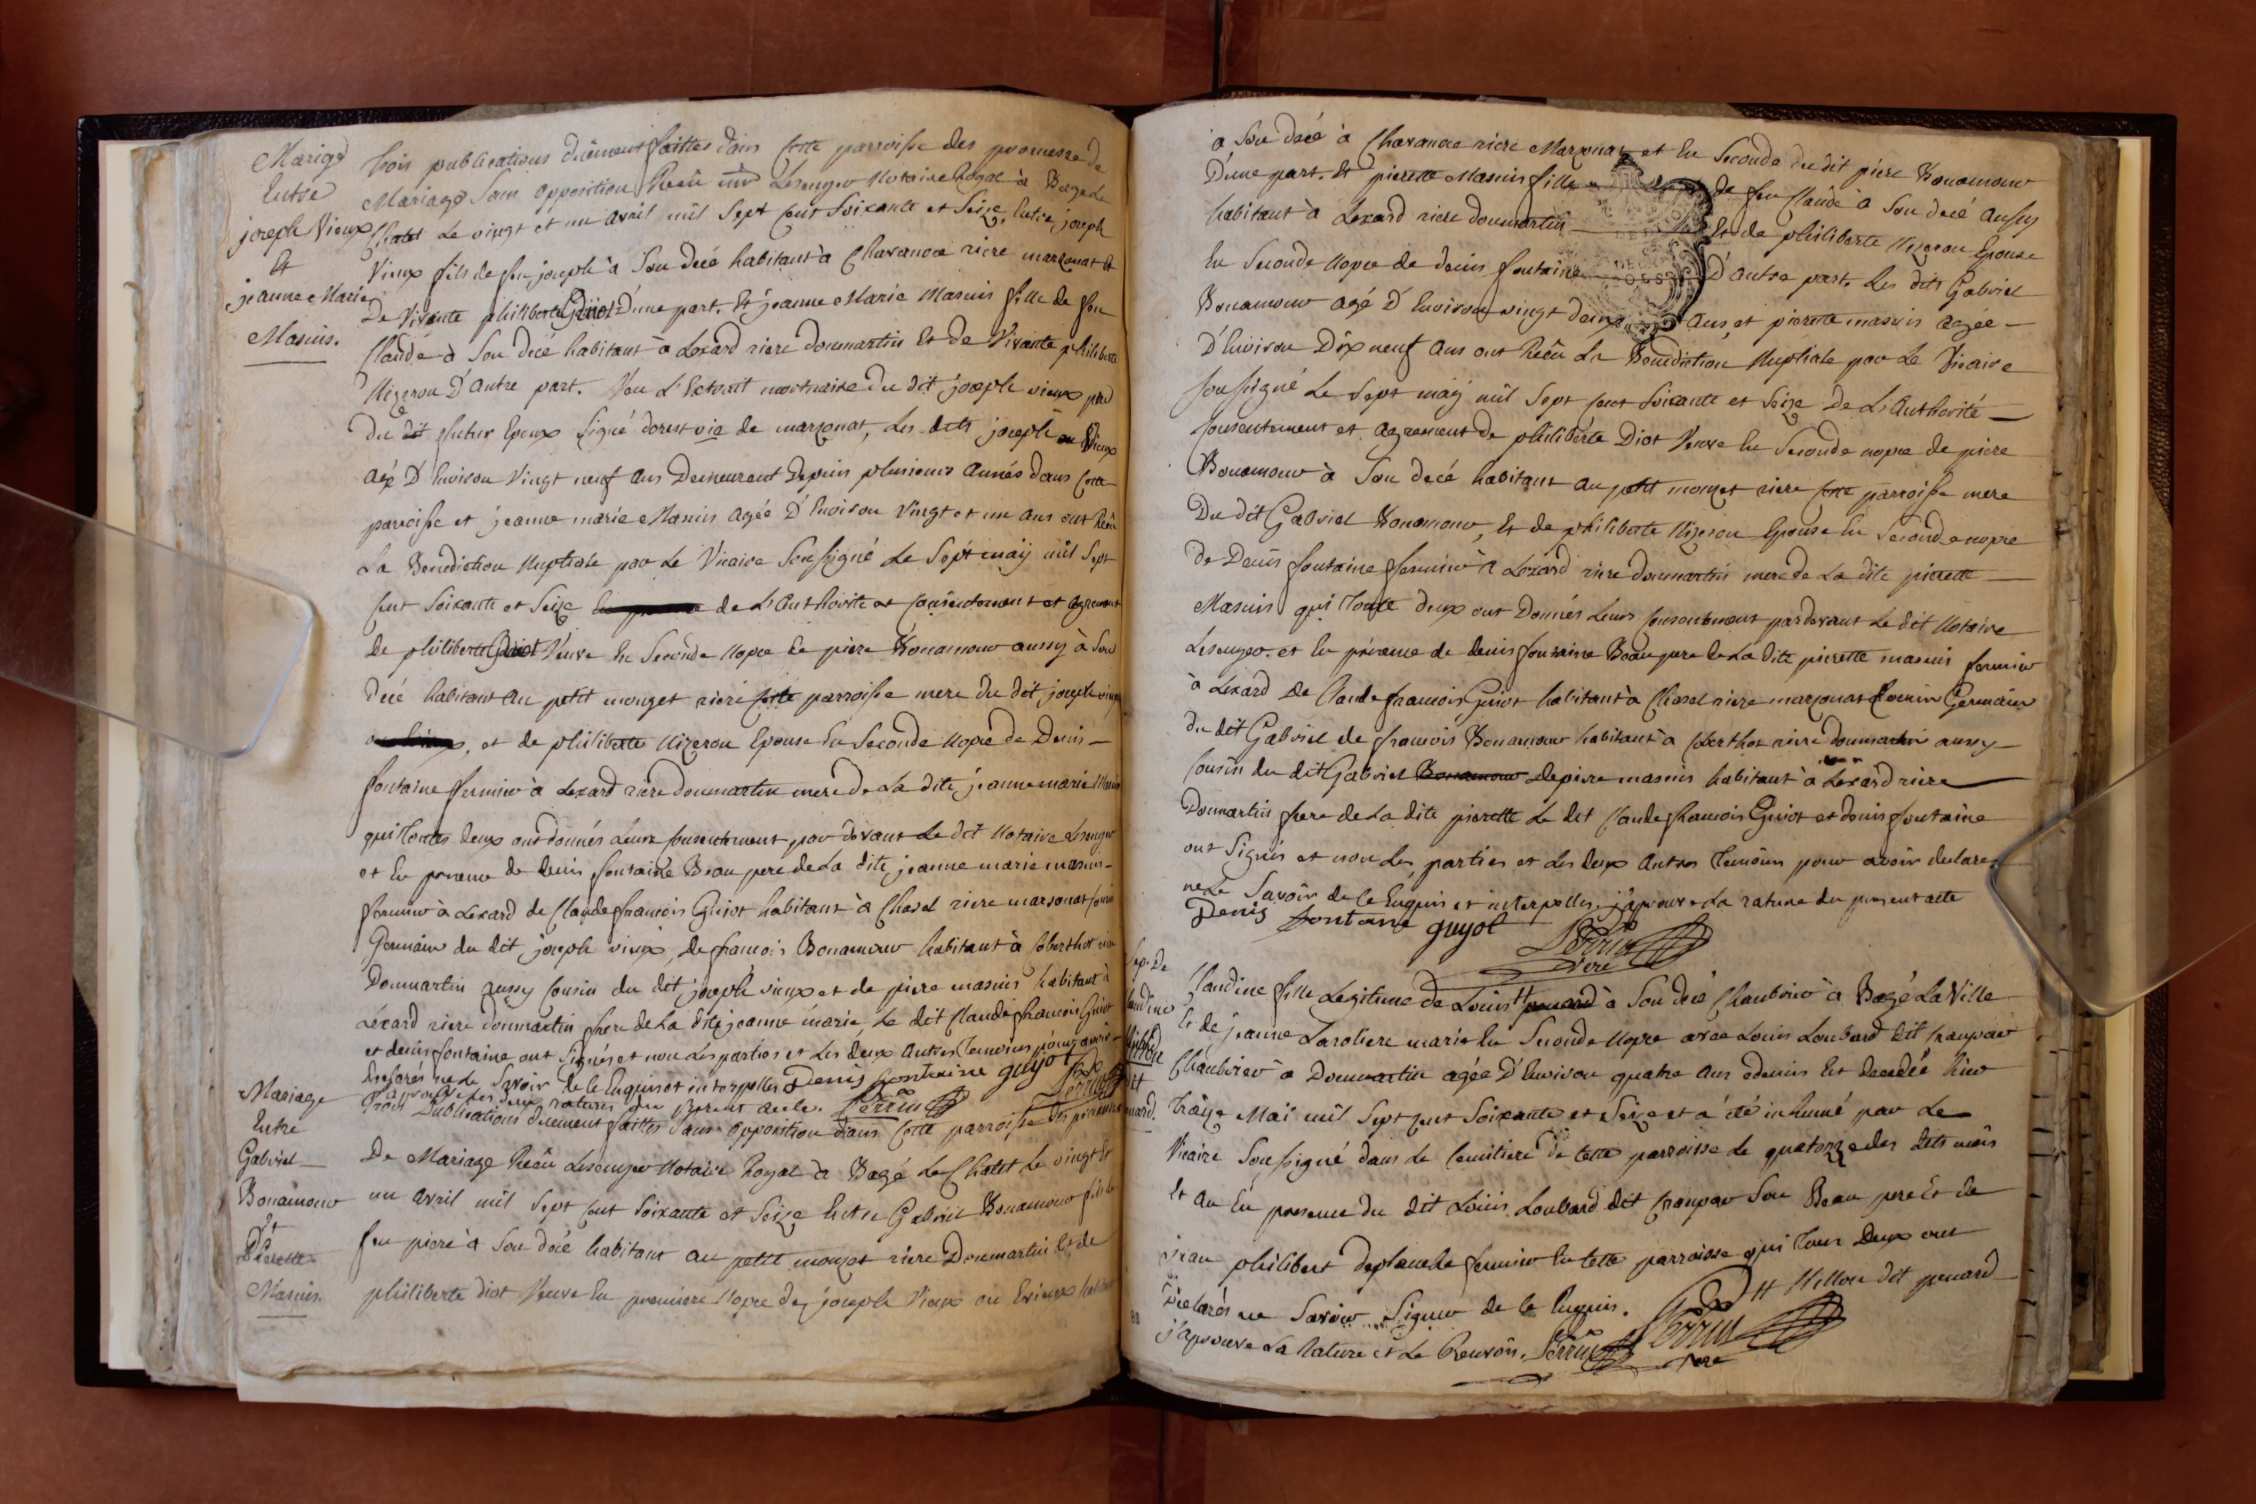 Mariage
Entre
joseph Vieux
Et
jeanne Marie
Masuis.
trois publications duëment faittes dans cette parroisse des promesse de
Mariage sans opposition Reçû Lesenyer Notaire Royal à Bagé Le
Chatel Le vingt et un avril mil sept cent soixante et seize, Entre joseph
Vieux fils de feu joseph à son decé habitant à Chavanoce riere marsonat Et
De Vivante philiberte Diot D'une part. Et jeanne Marie Masuis fille de feu
Claude à son decé habitant à Lexard riere dommartin Et de Vivante philiberte
Nizeron D'autre part. Veu L'Extrait mortuaire du dit joseph vieux pere
Du dit futur Epoux signé dorest vic de marsonat, Les dits joseph Vieux
agé D'Environ Vingt neuf ans Demeurent Depuis plusieurs années dans cette
parroisse et jeanne marie Masuis agée D'Environ Vingt et un ans ont Reçû
La Benediction Nuptiale par Le Vicaire soussigné Le sept maÿ mil sept
cent soixante et seize de L'Authorité et consentement et agrement
de philiberte Diot Veuve En seconde Nopce de piere Bonamour aussy à son
decé habitant au petit mouget riere cette parroisse mere du dit joseph vieux
, et de philiberte Nizeron Epouse En seconde Nopce de Denis
fontaine fermier à Lexard riere dommartin mere de La dite jeanne marie Masuis
qui toutes deux ont donnés Leurs consentement par devant Le dit Notaire Lesenyer
et En presence de denis fontaine Beau pere de La dite jeanne marie masuis
fermier à Lexard de Claude francois Guiot habitant à Chasel riere marsonat cousin
Germain du dit joseph vieux, de francois Bonamour habitant à Coberthot riere
Dommartin aussy cousin du dit joseph vieux et de piere masuis habitant à
Léxard riere dommartin frere de La dite jeanne marie, Le dit Claude francois Guiot
et denis fontaine ont signés et non Les parties et Les deux autres temoins pour avoir
declarés ne Le savoir de ce Enquis et interpellés Denis fontaine guyot
j'approuve Les deux ratures du present acte. Perrin
Mariage
Entre
Gabriel
Bonamour
Et
Pierette
Masuis
Trois Publications duement faittes sans opposition dans cette parroisse des promesse
De Mariage Reçû Lesenyer Notaire Royal à Bagé Le Chatel Le vingt et
un avril mil sept cent soixante et seize Entre Gabriel Bonamour fils de
feu piere à son decé habitant au petit mouget riere Dommartin Et de
philiberte diot Veuve En premiere Nopce de joseph Vieux ou Evieux habitant
à son decé à Chavanoce riere Marsonas et En seconde du dit piere Bonamour
D'une part. Et pierette Masuis fille de feu Claude à son decé aussy
habitant à Lexard riere dommartin Et de philiberte Nizeron Epouse
En seconde Nopce de denis fontaine D'autre part. Les dits Gabriel
Bonamour agé D'Environ vingt deux ans, et pierette masuis agée
D'Environ Dix neuf ans ont Reçû La Benediction Nuptiale par Le Vicaire
soussigné Le sept maÿ mil sept cent soixante et seize De L'Authorité
consentement et agrement de philiberte Diot Veuve En seconde nopce de piere
Bonamour à son decé habitant au petit mouget riere cette parroisse mere
Du dit Gabriel Bonamour, Et de philiberte Nizeron Epouse En seconde nopce
de Denis fontaine fermier à Lexard riere dommartin mere de La dite pierette
Masuis qui toute deux ont Donnés Leurs consentement pardevant Le dit Notaire
Lesenyer. et En présence de denis fontaine Beau pere de La dite pierette masuis fermier
à Lexard de Claude francois Guiot habitant à Chasel riere marsonas Cousin Germain
du dit Gabriel de francois Bonamour habitant à Coberthot riere dommartin aussy
cousin du dit Gabriel Bonamour de piere masuis habitant à Lexard riere
Dommartin frere de La dite pierette Le dit Claude francois Guiot et denis fontaine
ont signés et non Les parties et Les deux autres Temoins pour avoir declarés
ne Le savoir de ce Enquis et interpellés, j'approuve La rature du present acte
Denis fontaine guyot
Perrin
vicre
Sep. De
Claudine
Millon
dit
penard.
Claudine fille Legitime de Louis H penard à son decé Chanvrier à Bagé La Ville
Et de jeanne Laroliere marié En seconde Nopce avec Louis Loubard dit franpair
Chanvrier à Dommartin agée D'Environ quatre ans edemis Est decedée hier
traize Maï mil sept cent soixante et seize et a été inhumé par Le
Vicaire soussigné dans Le Cemitiere de cette parroisse Le quatorze des dits mois
Et an En presence du dit Louis Loubard dit franpair son Beau pere Et de
jean philibert deplanche fermier En cette parroisse qui tous Deux ont
Declarés ne savoir signer de ce Enquis. H Millon dit penard
j'aprouve La Rature et Le Renvoi. Perrin Perrin
vicre